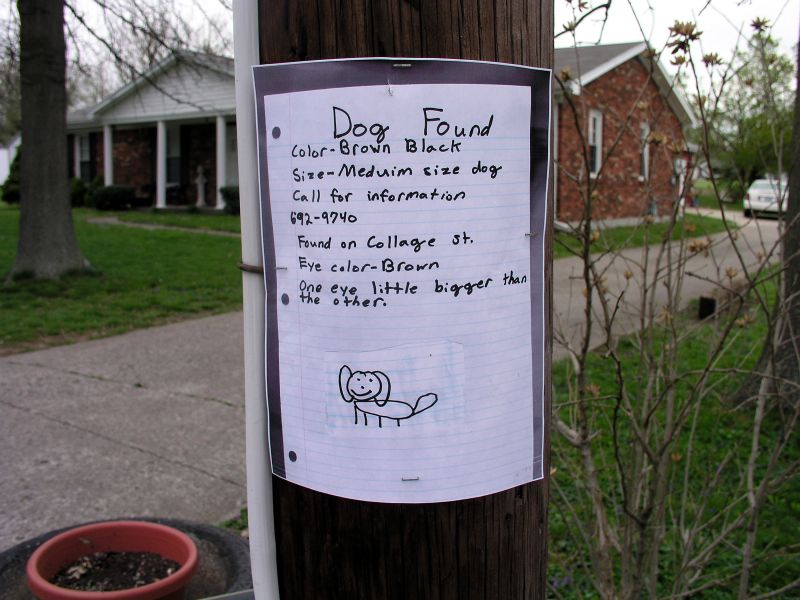 Dog Found
Color-Brown Black
Size-Meduim size dog
Call for information
692-9740
Found on Collage st.
Eye color-Brown
One eye little bigger than
the other.